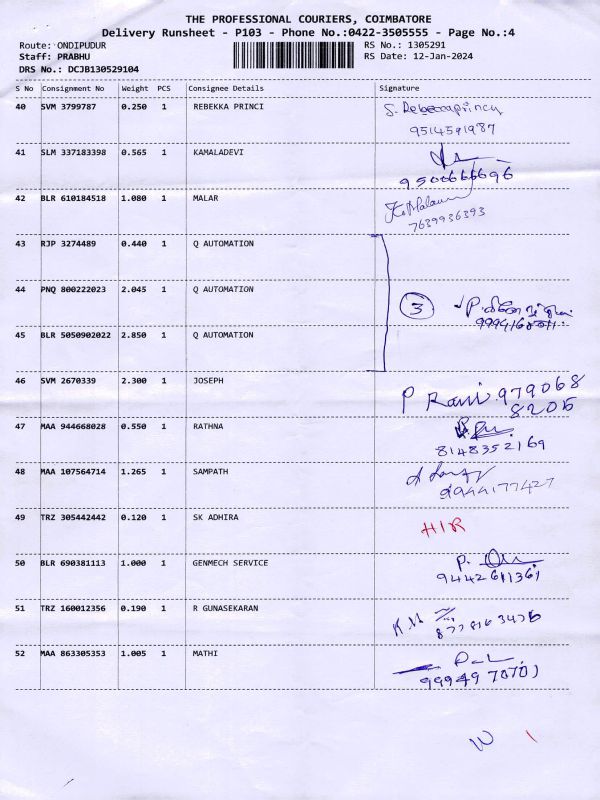 THE PROFESSIONAL COURIERS, COIMBATORE
Delivery Runsheet - P103 - Phone No.:0422-3505555 - Page No.:4
Route: ONDIPUDUR RS No.: 1305291
Staff: PRABHU RS Date: 12-Jan-2024
DRS No.: DCJB130529104
S No Consignment No Weight PCS Consignee Details Signature
40 SVM 3799787 0.250 1 REBEKKA PRINCI S. Rebeccaprincy
9514591987
41 SLM 337183398 0.565 1 KAMALADEVI
9500666696
42 BLR 610184518 1.080 1 MALAR
7639936393
43 RJP 3274489 0.440 1 Q AUTOMATION
44 PNQ 800222023 2.045 1 Q AUTOMATION 3
45 BLR 5050902022 2.850 1 Q AUTOMATION
46 SVM 2670339 2.300 1 JOSEPH P Rani 979068
8205
47 MAA 944668028 0.550 1 RATHNA
8148352169
48 MAA 107564714 1.265 1 SAMPATH
9944177427
49 TRZ 305442442 0.120 1 SK ADHIRA HIR
50 BLR 690381113 1.000 1 GENMECH SERVICE P.
9442611361
51 TRZ 160012356 0.190 1 R GUNASEKARAN
8778163476
52 MAA 863305353 1.005 1 MATHI
9994970701